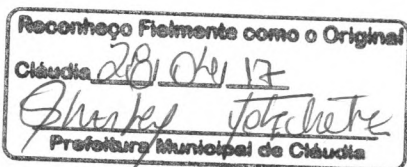 Reconheço Fielmente como o Original
Cláudia 28/04/17
Prefeitura Municipal de Cláudia